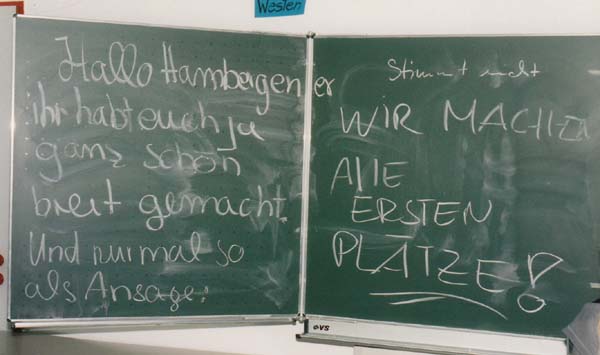 Westen
Hallo Hambergener
ihr habt euch ja
ganz schön
breit gemacht.
Und nur mal so
als Ansage:
Stimmt nicht
WIR MACHEN
Alle
ERSTEN
PLÄTZE!
OVS